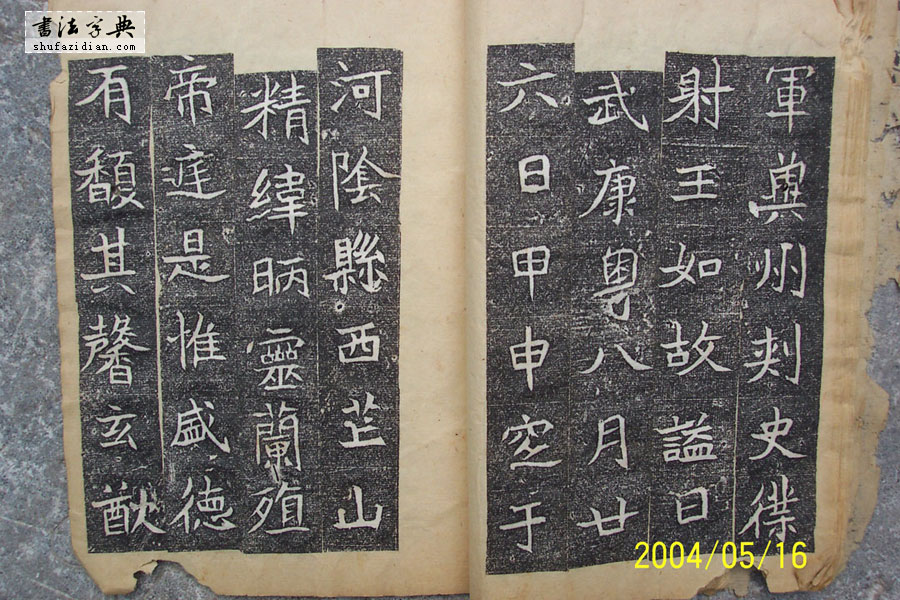 書法字典
shufazidian.com
軍冀州刾史㒒
射王如故謚曰
武康粵八月廿
六日甲申窆于
河陰縣西芒山
精緯昞靈蘭殖
帝庭是惟盛德
有馥其馨玄猷
2004/05/16